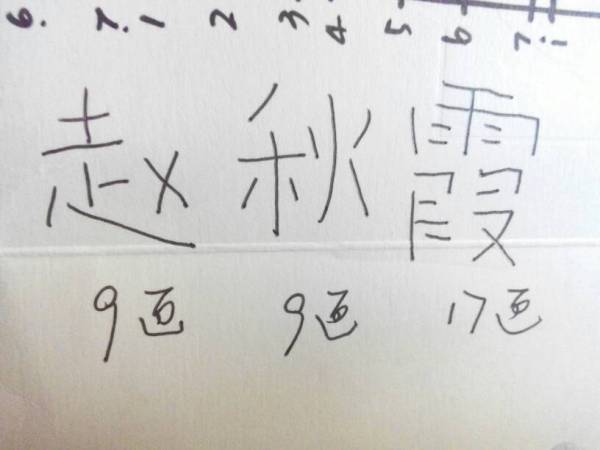 6. 7. 1 2 3 4 5 6 7. i
赵 秋 霞
9画 9画 17画